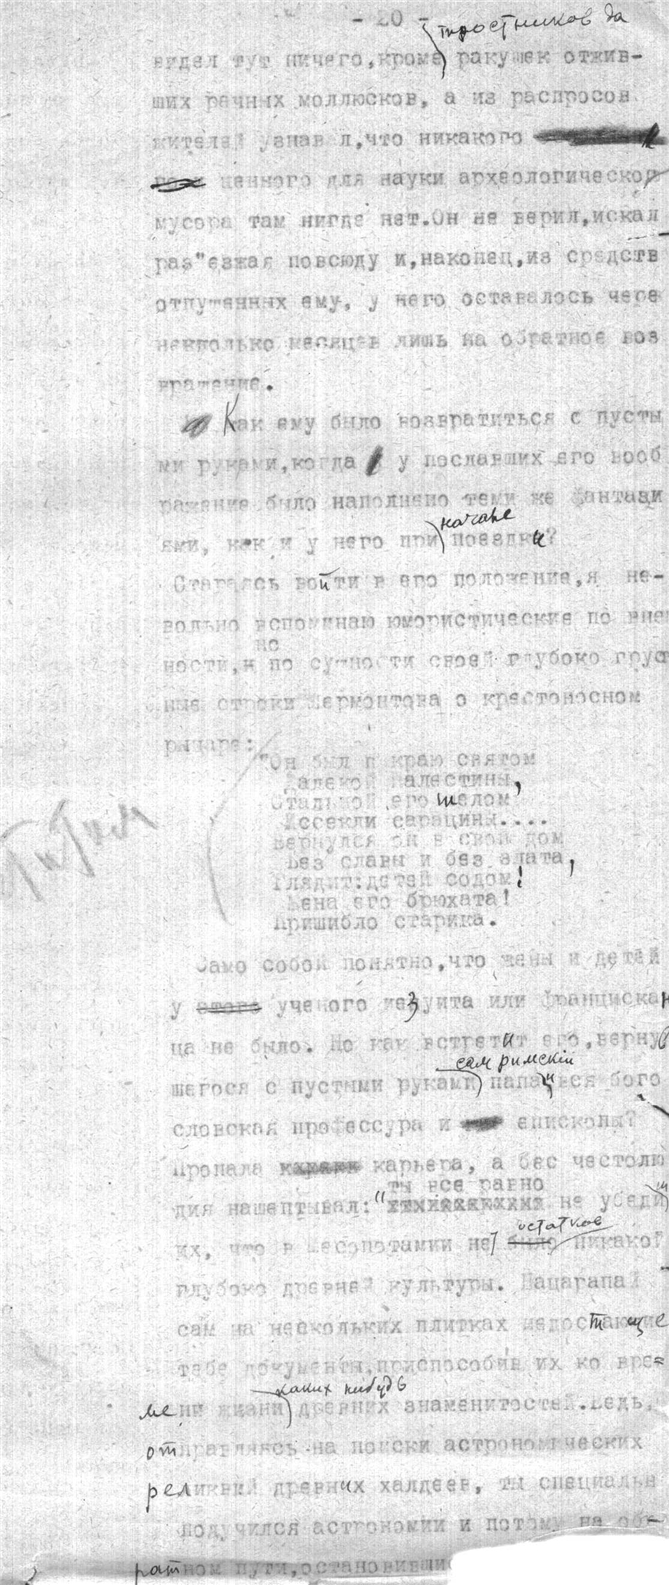 - 20 -
тростников да
видел тут ничего, кроме ракушек отжив-
ших речных моллюсков, а из распросов
жителей узнавал, что никакого
ценного для науки археологического
мусора там нигде нет. Он не верил, искал
раз"езжая повсюду и, наконец, из средств
отпущенных ему, у него оставалось чере
несколько месяцев лишь на обратное воз
вращение.
Как ему было возвратиться с пусты
ми руками, когда у пославших его вооб
ражение было наполнено теми же фантази
начале
ями, как и у него при поездки?
Стараясь войти в его положение, я не-
вольно вспоминаю юмористические по вне
но
ности, н по сущности своей глубоко груст
ные строки Лермонтова о крестоносном
рыцаре:
"Он был в краю святом
Далекой Палестины,
Стальной его шелом
Иссекли сарацины....
Вернулся он в свой дом
Без славы и без злата,
Глядит: детей содом!
Жена его брюхата!
Пришибло старика.
Само собой понятно, что жены и детей
у этого ученого иезуита или францискан
ца не было. Но как встретит его, вернув
сам римскій
шегося с пустыми руками папа, вся бого
словская профессура и епископы?
Пропала карьера, а бес честолю
ты все равно
дия нашептывал: " не убеди
остатков
их, что в Месопотамии нет было никакой
глубоко древней культуры. Нацарапай
сам на нескольких плитках недостающие
тебе документы, приспособив их ко вре=
каких нибудь
мени жизни древних знаменитостей. Ведь,
отправляясь на поиски астрономических
реликвий древних халдеев, ты специальн
подучился астрономии и потому на об-
ратном пути, остановивши